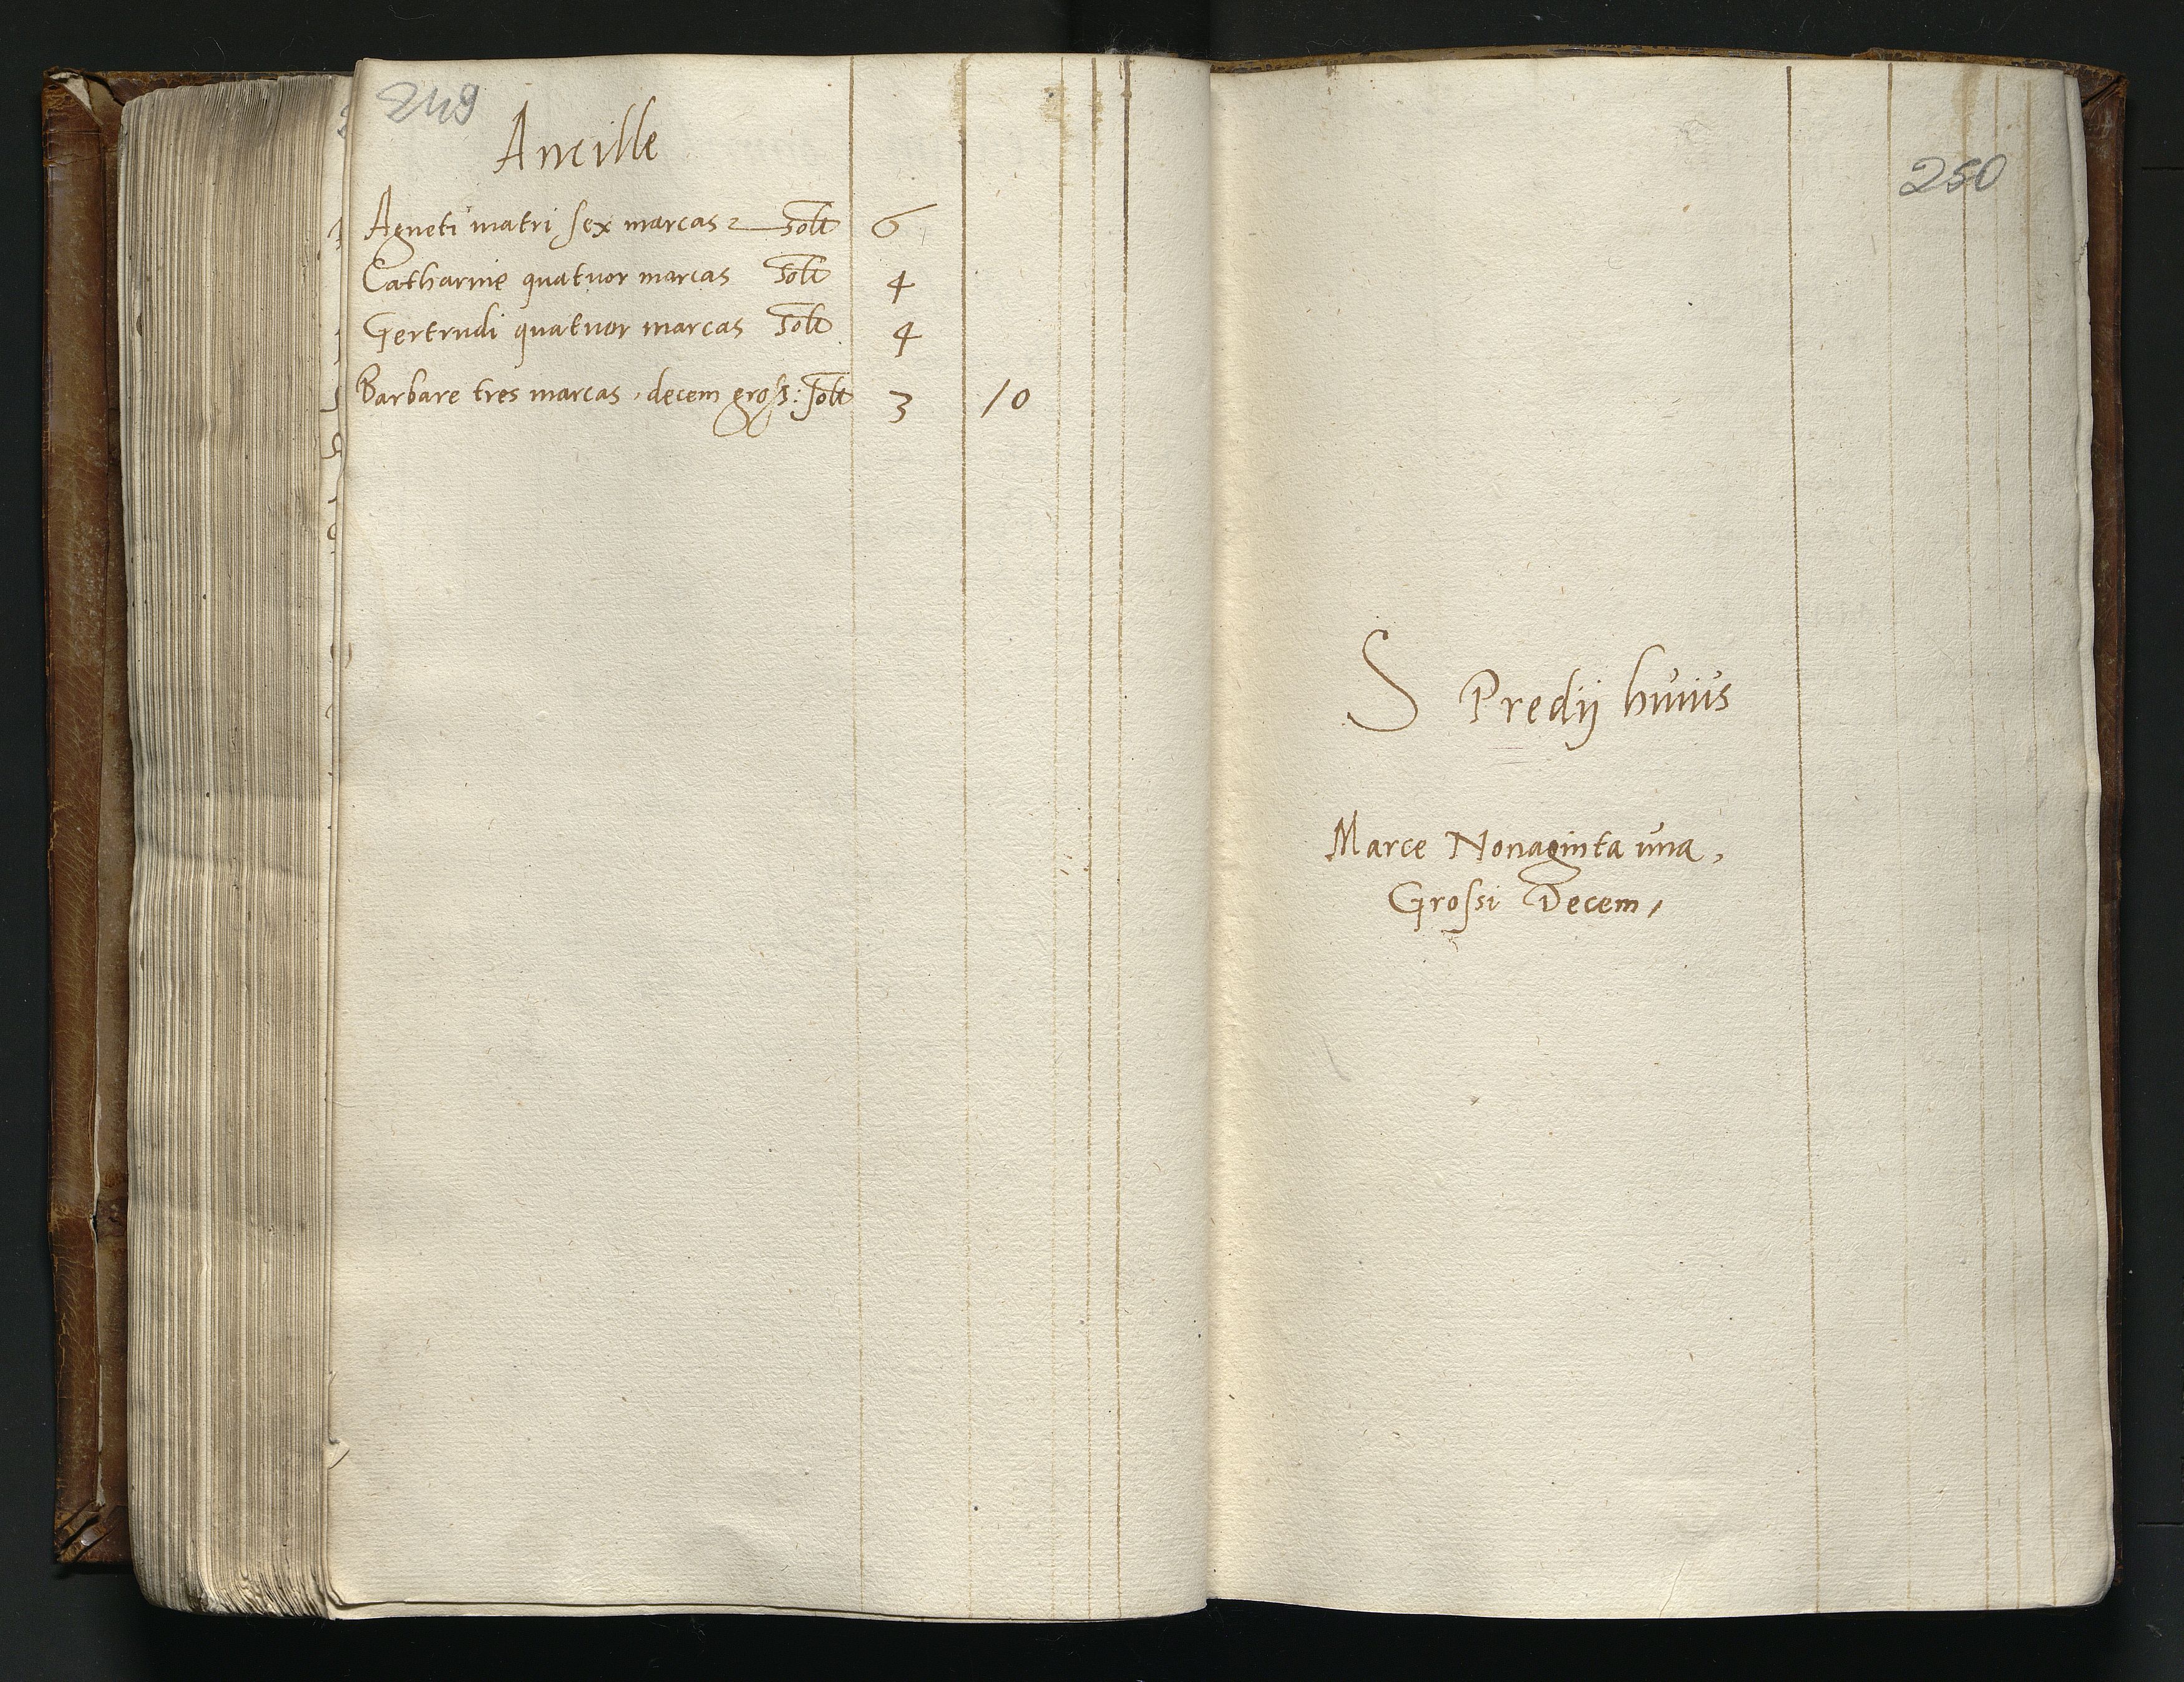 249
Ancille
Agneti matri sex marcas solt 6
Catharine quatuor marcas solt 4
Gertrudi quatuor marcas solt 4
Barbare tres marcas, decem gross: solt 3 10
250
S Predij huius
Marce Nonaginta una,
Grossi Decem,